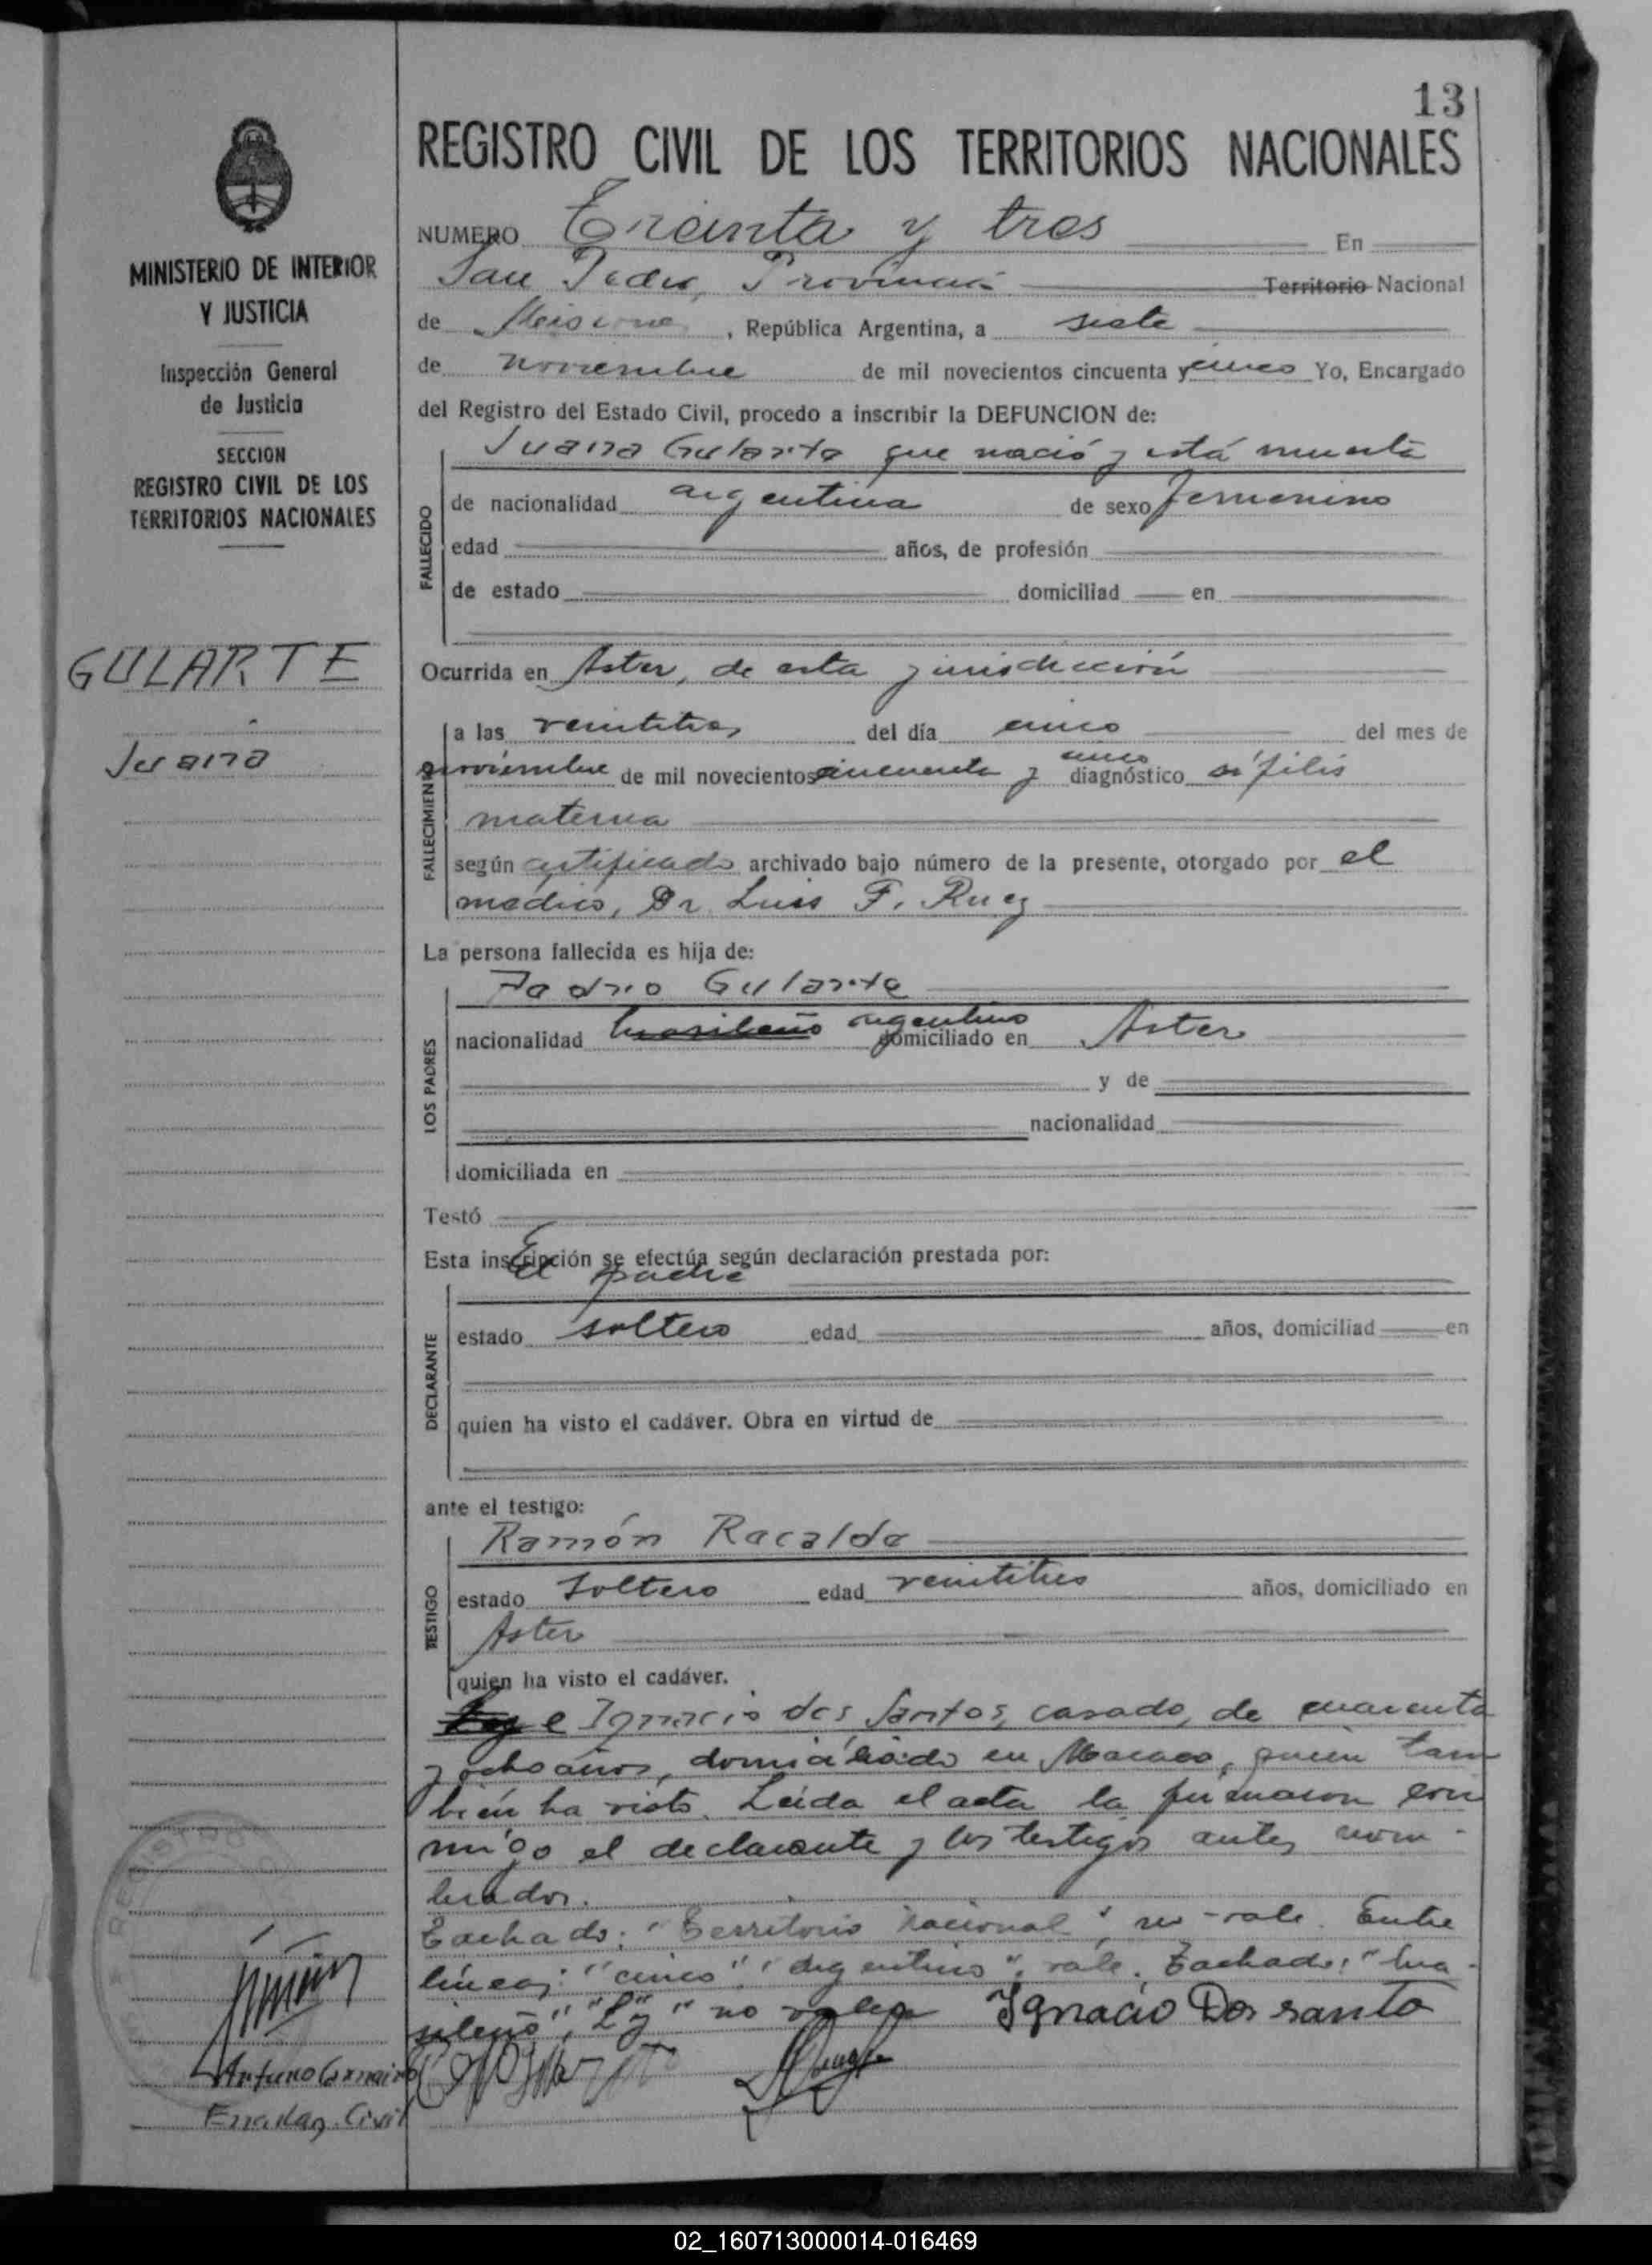 13
REGISTRO CIVIL DE LOS TERRITORIOS NACIONALES
MINISTERIO DE INTERIOR
Y JUSTICIA
Inspección General
de Justicia
SECCION
REGISTRO CIVIL DE LOS
TERRITORIOS NACIONALES
GULARTE
Juana
NUMERO Treinta y tres En
San Pedro, Provincia Territorio Nacional
de Misiones, República Argentina, a siete
de noviembre de mil novecientos cincuenta y cinco Yo, Encargado
del Registro del Estado Civil, procedo a inscribir la DEFUNCION de:
Juana Gularte que nació y está muerta
FALLECIDO
de nacionalidad argentina de sexo femenino
edad años, de profesión
de estado domiciliad en
Ocurrida en Aster, de esta jurisdicción
FALLECIMIENTO
a las veintitres del día cinco del mes de
noviembre de mil novecientos cincuenta y cinco diagnóstico sífilis
materna
según certificado archivado bajo número de la presente, otorgado por el
medico, Dr. Luis F. Ruez
La persona fallecida es hija de:
LOS PADRES
Pedro Gularte
nacionalidad brasileño argentino domiciliado en Aster
y de
nacionalidad
domiciliada en
Testó
Esta inscripción se efectúa según declaración prestada por:
El padre
DECLARANTE
estado soltero edad años, domiciliad en
quien ha visto el cadáver. Obra en virtud de
ante el testigo:
TESTIGO
Ramón Recalde
estado soltero edad veintitres años, domiciliado en
Aster
quien ha visto el cadáver.
e Ignacio dos Santos, casado, de cuarenta
y ocho años, domiciliado en Macaco, quien tam
bién ha visto. Leída el acta la firmaron con
migo el declarante y los testigos antes nom-
brados.
Tachado: "Territorio nacional", no-vale. Entre
líneas: "cinco", "argentino", vale. Tachado: "bra-
sileño", "Ley" no valen Ignacio Dos santo
Encdag. Civil
02_160713000014-016469